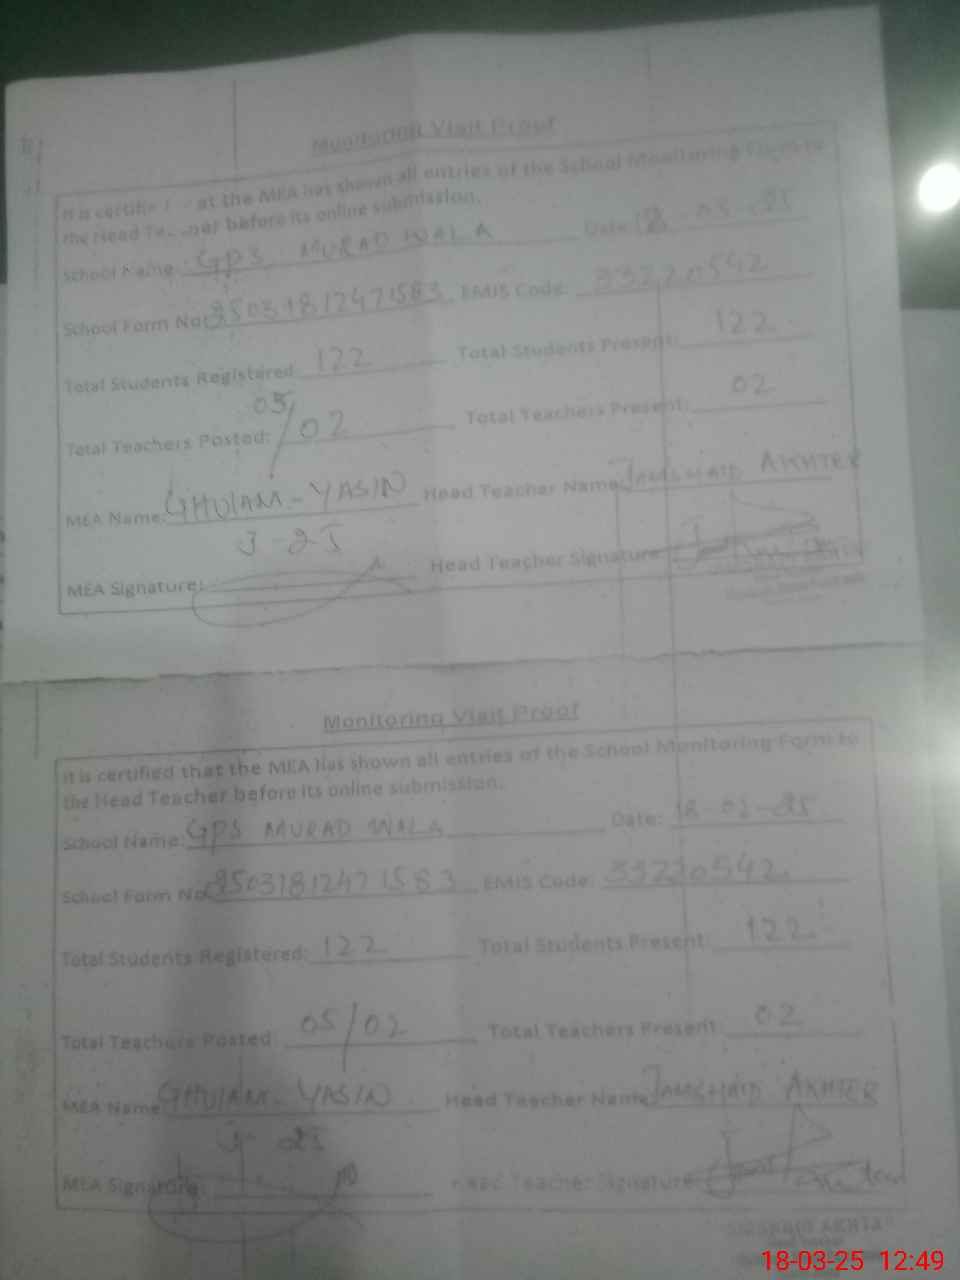 Monitoring Visit Proof
It is certifie at the MEA has shown all entries of the School Monitoring Form to
the Head before its online submission.
School Name: GPS MURAD WALA Date: 18-03-25
School Form No: 95031812471583 EMIS Code: 33220542
Total Students Registered: 122 Total Students Present: 122
Total Teachers Posted: 05/02 Total Teachers Present: 02
MEA Name: GHULAM-YASIN Head Teacher Name: JAMSHAID AKHTER
MEA Signature: Head Teacher Signature
Monitoring Visit Proof
It is certified that the MEA has shown all entries of the School Monitoring Form to
the Head Teacher before its online submission.
School Name: GPS MURAD WALA Date: 18-03-25
School Form No 95031812471583 EMIS Code: 33220542
Total Students Registered: 122 Total Students Present: 122
Total Teachers Posted: 05/02 Total Teachers Present: 02
MEA Name: GHULAM-YASIN Head Teacher Name JAMSHAID AKHTER
MEA Signature: Head Teacher Signature
18-03-25 12:49